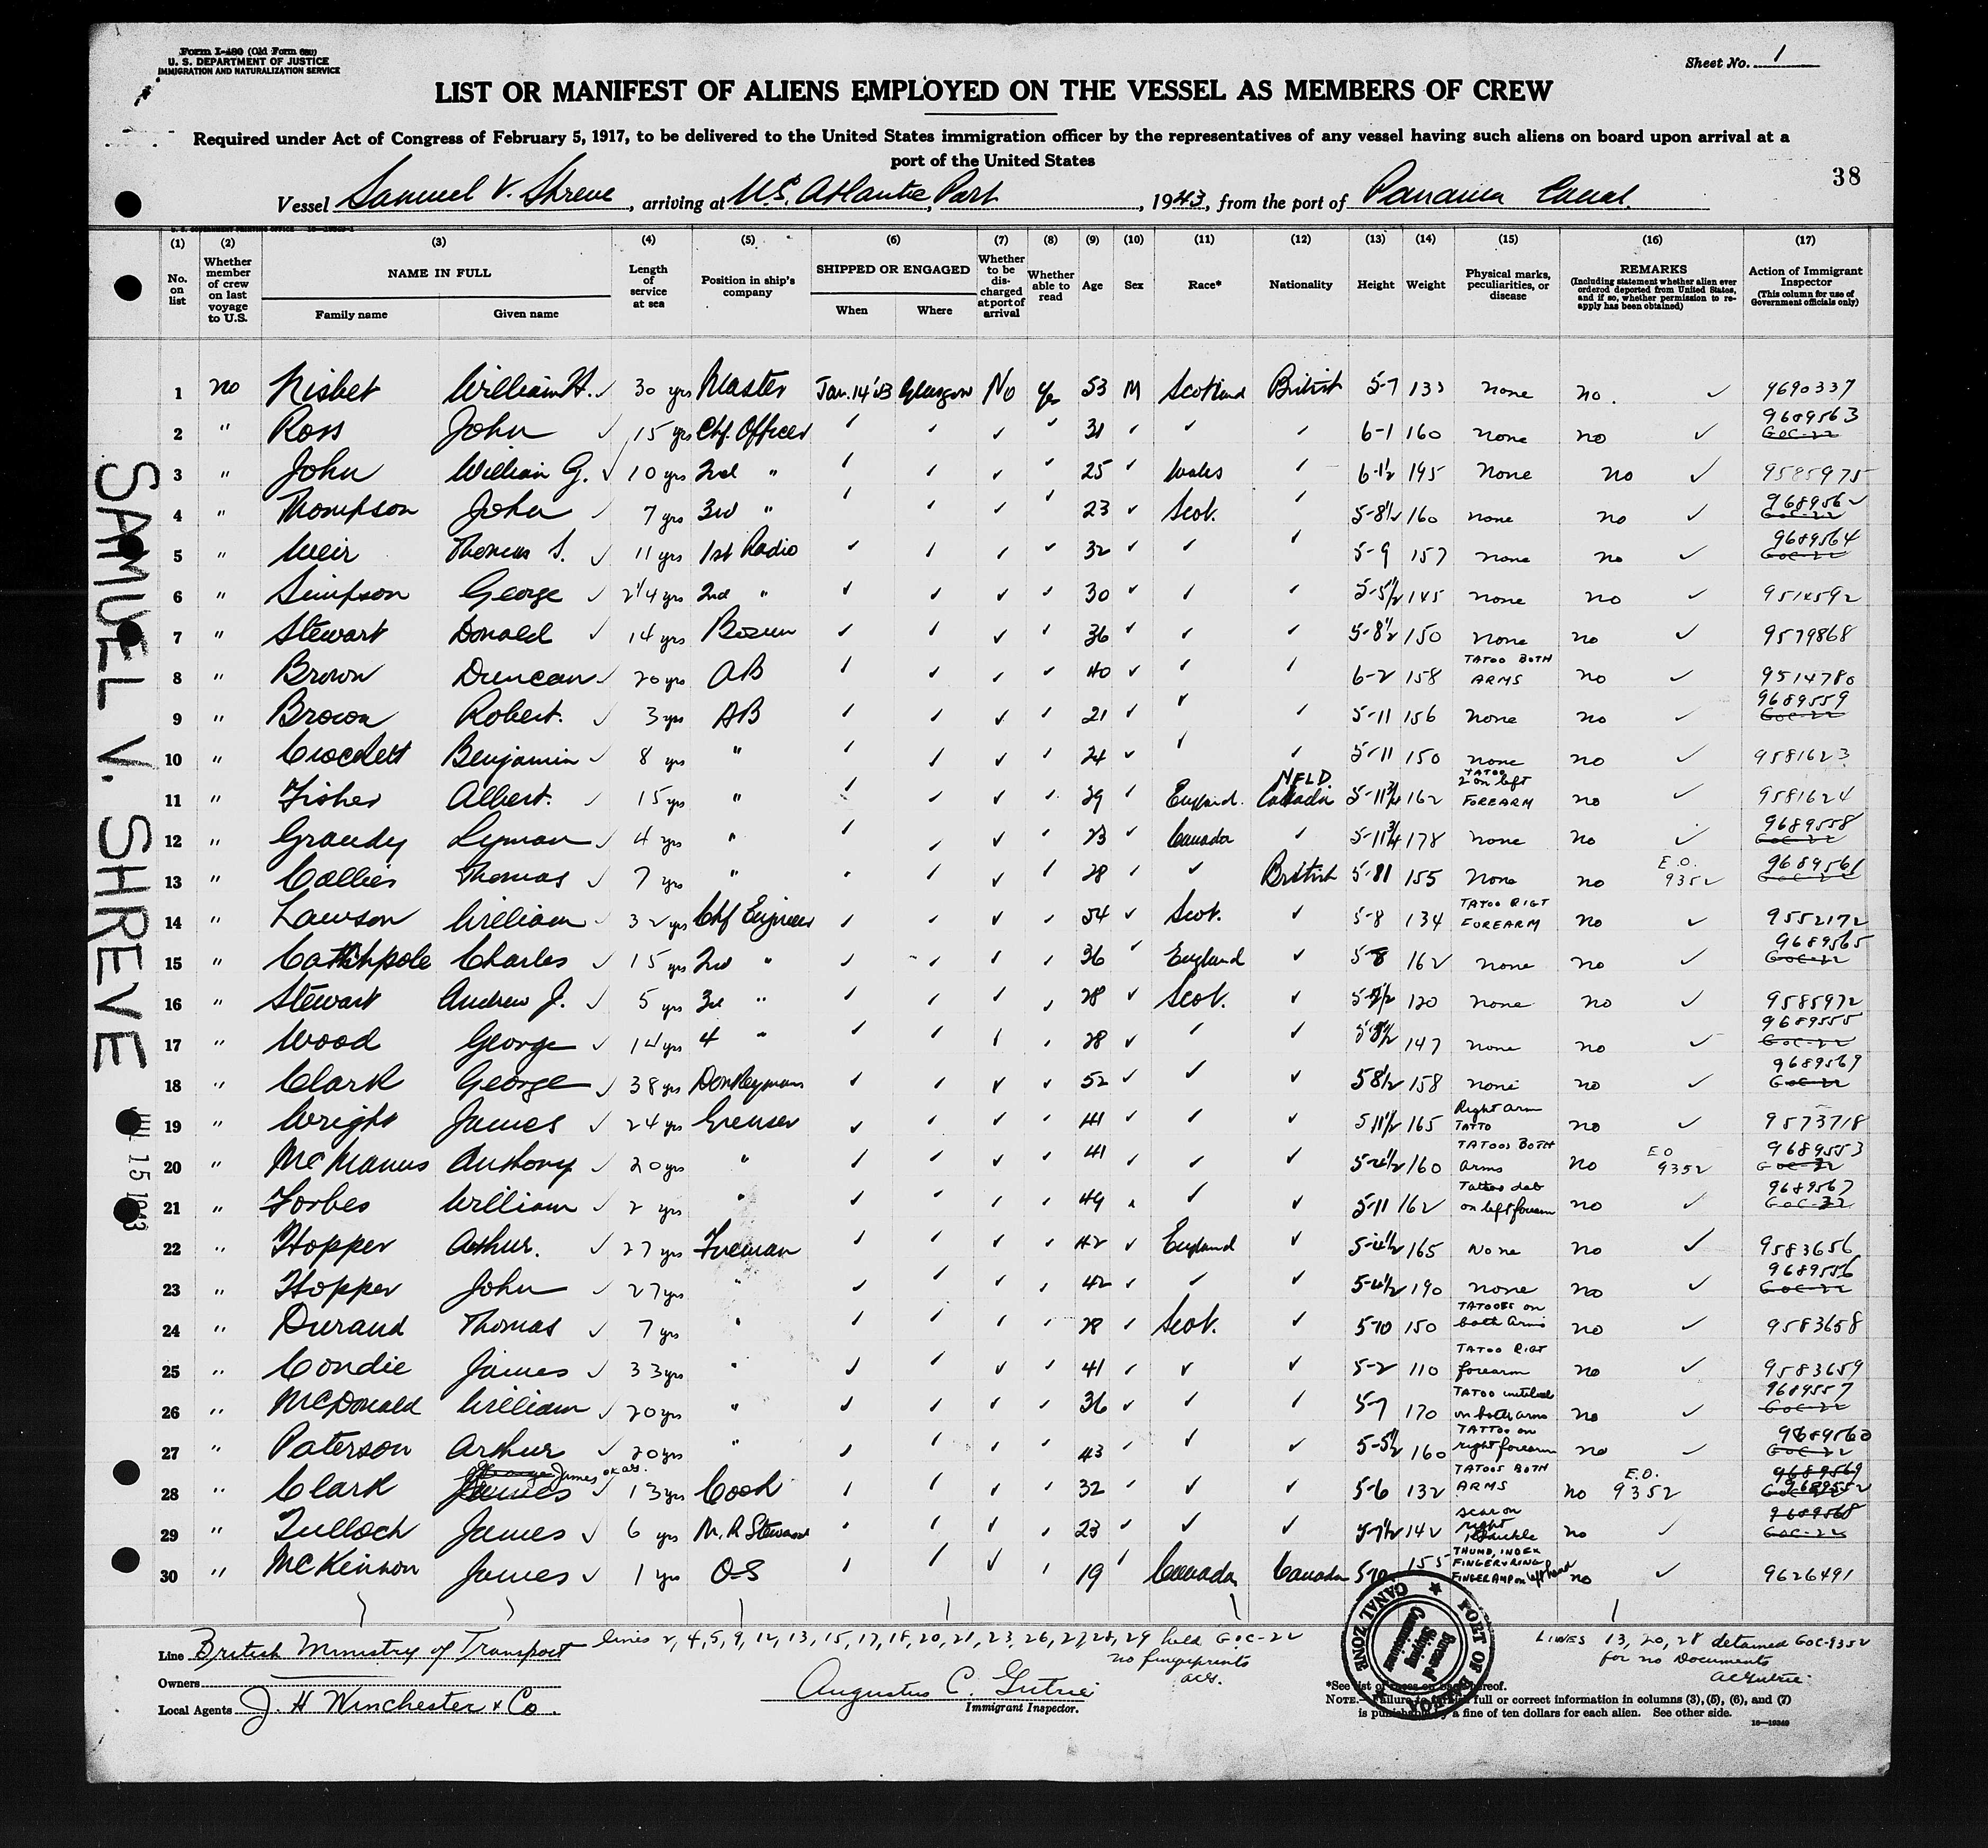 Form I-480 (Old Form 680)
U. S. DEPARTMENT OF JUSTICE
IMMIGRATION AND NATURALIZATION SERVICE
Sheet No. 1
LIST OR MANIFEST OF ALIENS EMPLOYED ON THE VESSEL AS MEMBERS OF CREW
Required under Act of Congress of February 5, 1917, to be delivered to the United States immigration officer by the representatives of any vessel having such aliens on board upon arrival at a
port of the United States
38
Vessel Samuel V. Shreve, arriving at U.S. Atlantic Port, 1943, from the port of Panama Canal.
(1) (2) (3) (4) (5) (6) (7) (8) (9) (10) (11) (12) (13) (14) (15) (16) (17)
No. on list Whether member of crew on last voyage to U.S. NAME IN FULL Family name Given name Length of service at sea Position in ship's company SHIPPED OR ENGAGED When Where Whether to be discharged at port of arrival Whether able to read Age Sex Race* Nationality Height Weight Physical marks, peculiarities, or disease REMARKS (Including statement whether alien ever ordered deported from United States, and if so, whether permission to reapply has been obtained) Action of Immigrant Inspector (This column for use of Government officials only)
1 no Nisbet William H. ✓ 30 yrs Master Jan. 14 '43 Glasgow No Yes 53 M Scotland British 5-7 133 none no. ✓ 9690337
2 " Ross John ✓ 15 yrs Chf. Officer 31 6-1 160 none no ✓ 9689563 GOC-22
3 " John William G. ✓ 10 yrs 2nd " 25 Wales 6-1½ 195 None no ✓ 9585975
4 " Thompson John ✓ 7 yrs 3rd " 23 Scot. 5-8½ 160 none no ✓ 9689562 GOC-22
5 " Weir Thomas S. ✓ 11 yrs 1st Radio 32 5-9 157 none no ✓ 9689564 GOC-22
6 " Simpson George ✓ 2¼ yrs 2nd " 30 5-5½ 145 none no ✓ 9514592
7 " Stewart Donald ✓ 14 yrs Bosun 36 5-8½ 150 None no ✓ 9579868
8 " Brown Duncan ✓ 20 yrs AB 40 6-2 158 TATOO BOTH ARMS no ✓ 9514780
9 " Brown Robert. ✓ 3 yrs AB 21 5-11 156 None no ✓ 9689559 GOC-22
10 " Crockett Benjamin ✓ 8 yrs " 24 5-11 150 none no ✓ 9581623
11 " Fisher Albert. ✓ 15 yrs " 29 England. NFLD. Canada 5-11¾ 162 TATOO 2 on left FOREARM no ✓ 9581624
12 " Grandy Lyman ✓ 4 yrs " 23 Canada 5-11¾ 178 none no ✓ 9689558 GOC-22
13 " Collier Thomas ✓ 7 yrs " 28 British 155 None no E.O. 9352 9689561 GOC-22
14 " Lawson William ✓ 32 yrs Chf Engineer 54 Scot. 5-8 134 TATOO RIGT FOREARM no ✓ 9552172
15 " Catchpole Charles ✓ 15 yrs 2nd " 36 England 5-8 162 none no ✓ 9689565 GOC-22
16 " Stewart Andrew J. ✓ 5 yrs 3rd " 28 Scot. 120 none no ✓ 9585972
17 " Wood George ✓ 14 yrs 4 " 28 147 none no ✓ 9689555 GOC-22
18 " Clark George ✓ 38 yrs Donkeyman 52 5 8½ 158 none no ✓ 9689569 GOC-22
19 " Wright James ✓ 24 yrs Greaser 41 5 11½ 165 Right arm TATTO no ✓ 9573718
20 " McManus Anthony ✓ 20 yrs " 41 5-4½ 160 TATOOS BOTH arms no EO 9352 9689553 GOC-22
21 " Forbes William ✓ 2 yrs " 49 5-11 162 on left forearm no ✓ 9689567 GOC-22
22 " Hopper Arthur. ✓ 27 yrs Fireman 42 England 5-4½ 165 None no ✓ 9583656
23 " Hopper John ✓ 27 yrs " 42 5-4½ 190 none no ✓ 9689556 GOC-22
24 " Durand Thomas ✓ 7 yrs " 28 Scot. 5-10 150 TATOOES on both arms no ✓ 9583658
25 " Condie James ✓ 33 yrs " 41 5-2 110 TATOO RIGT forearm no ✓ 9583659
26 " McDonald William ✓ 20 yrs " 36 5-7 170 TATOO on both arms no ✓ 9689557 GOC-22
27 " Paterson Arthur ✓ 20 yrs " 43 5-5½ 160 TATTOO on right forearm no ✓ 9689560 GOC-22
28 " Clark James James ok acs. ✓ 13 yrs Cook 32 5-6 132 TATOOS BOTH ARMS no E.O. 9352 9689569 9689552 GOC-22
29 " Tulloch James ✓ 6 yrs M.R Steward 23 5-7½ 142 scar on right no ✓ 9689568 GOC-22
30 " McKinnon James ✓ 1 yrs O-S 19 Canada Canada 5-10 155 THUMB, INDEX FINGER & RING FINGER AMP on left hand no ✓ 9626491
SAMUEL V. SHREVE
JUL 15 1943
Line British Ministry of Transport
lines 2, 4, 5, 9, 12, 13, 15, 17, 18, 20, 21, 23, 26, 27, 28, 29 held GOC-22
no fingerprints
acg.
LINES 13, 20, 28 detained GOC-9352
for no Documents
ACGutrie
Owners
Local Agents J. H Winchester & Co.
Augustus C. Gutrie
Immigrant Inspector.
PORT OF BALBOA CANAL ZONE
Bureau of Shipping Commissioner
*See list of races on back hereof.
NOTE.—Failure to furnish full or correct information in columns (3), (5), (6), and (7)
is punishable by a fine of ten dollars for each alien. See other side.
16—19349